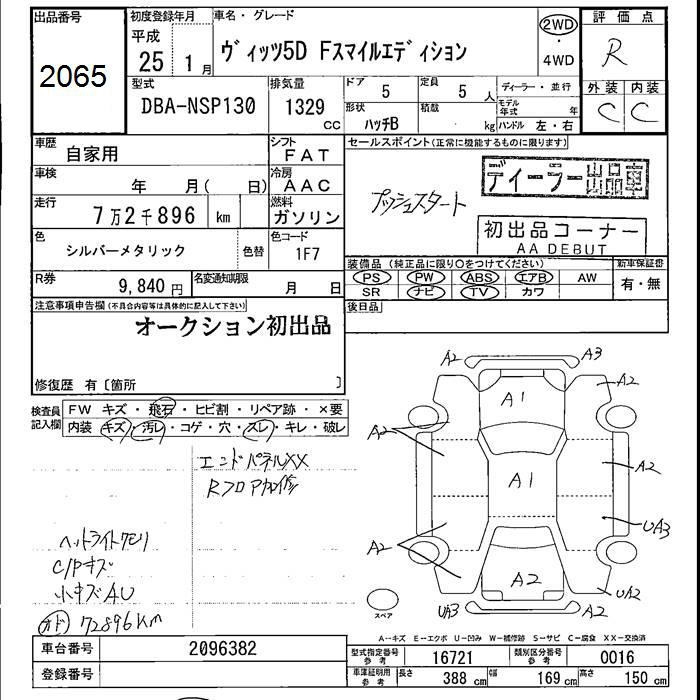 出品番号
2065
初度登録年月
平成
25 1月
車名・グレード
ヴィッツ5D Fスマイルエディション
2WD
・
4WD
評価点
R
外装 内装
C C
型式
DBA-NSP130
排気量
1329
CC
ドア 5
定員 5人
形状
ハッチB
積載
kg
ディーラー・並行
モデル年式 年
ハンドル 左・右
車歴
自家用
シフト
FAT
車検
年 月( 日)
冷房
AAC
走行
7万2千896 km
燃料
ガソリン
色
シルバーメタリック
色替
色コード
1F7
R券
9,840円
名変通知期限
月 日
セールスポイント(正常に機能するものに限ります)
プッシュスタート
ディーラー出品車
初出品コーナー
AA DEBUT
装備品(純正品に限り○をつけてください)
PS PW ABS エアB AW
SR ナビ TV カワ
新車保証書
有・無
後日品
注意事項申告欄(不具合内容等は具体的に記入して下さい)
オークション初出品
修復歴 有〔箇所 〕
検査員記入欄
FW キズ・飛石・ヒビ割・リペア跡・×要
内装 キズ・汚レ・コゲ・穴・スレ・キレ・破レ
エンドパネルXX
Rフロア
ヘッドライトクモリ
C/Pキズ
小キズAU
72896km
A2 A3
A2
A1
A2
A2
A1
A2
UA3
A2
A2
UA3
UA2
A2
スペア
A-キズ E-エクボ U-凹み W-補修跡 S-サビ C-腐食 XX-交換済
車台番号
2096382
登録番号
型式指定番号
参考
16721
類別区分番号
参考
0016
車庫証明用
参考
長さ 388 cm
幅 169 cm
高さ 150 cm